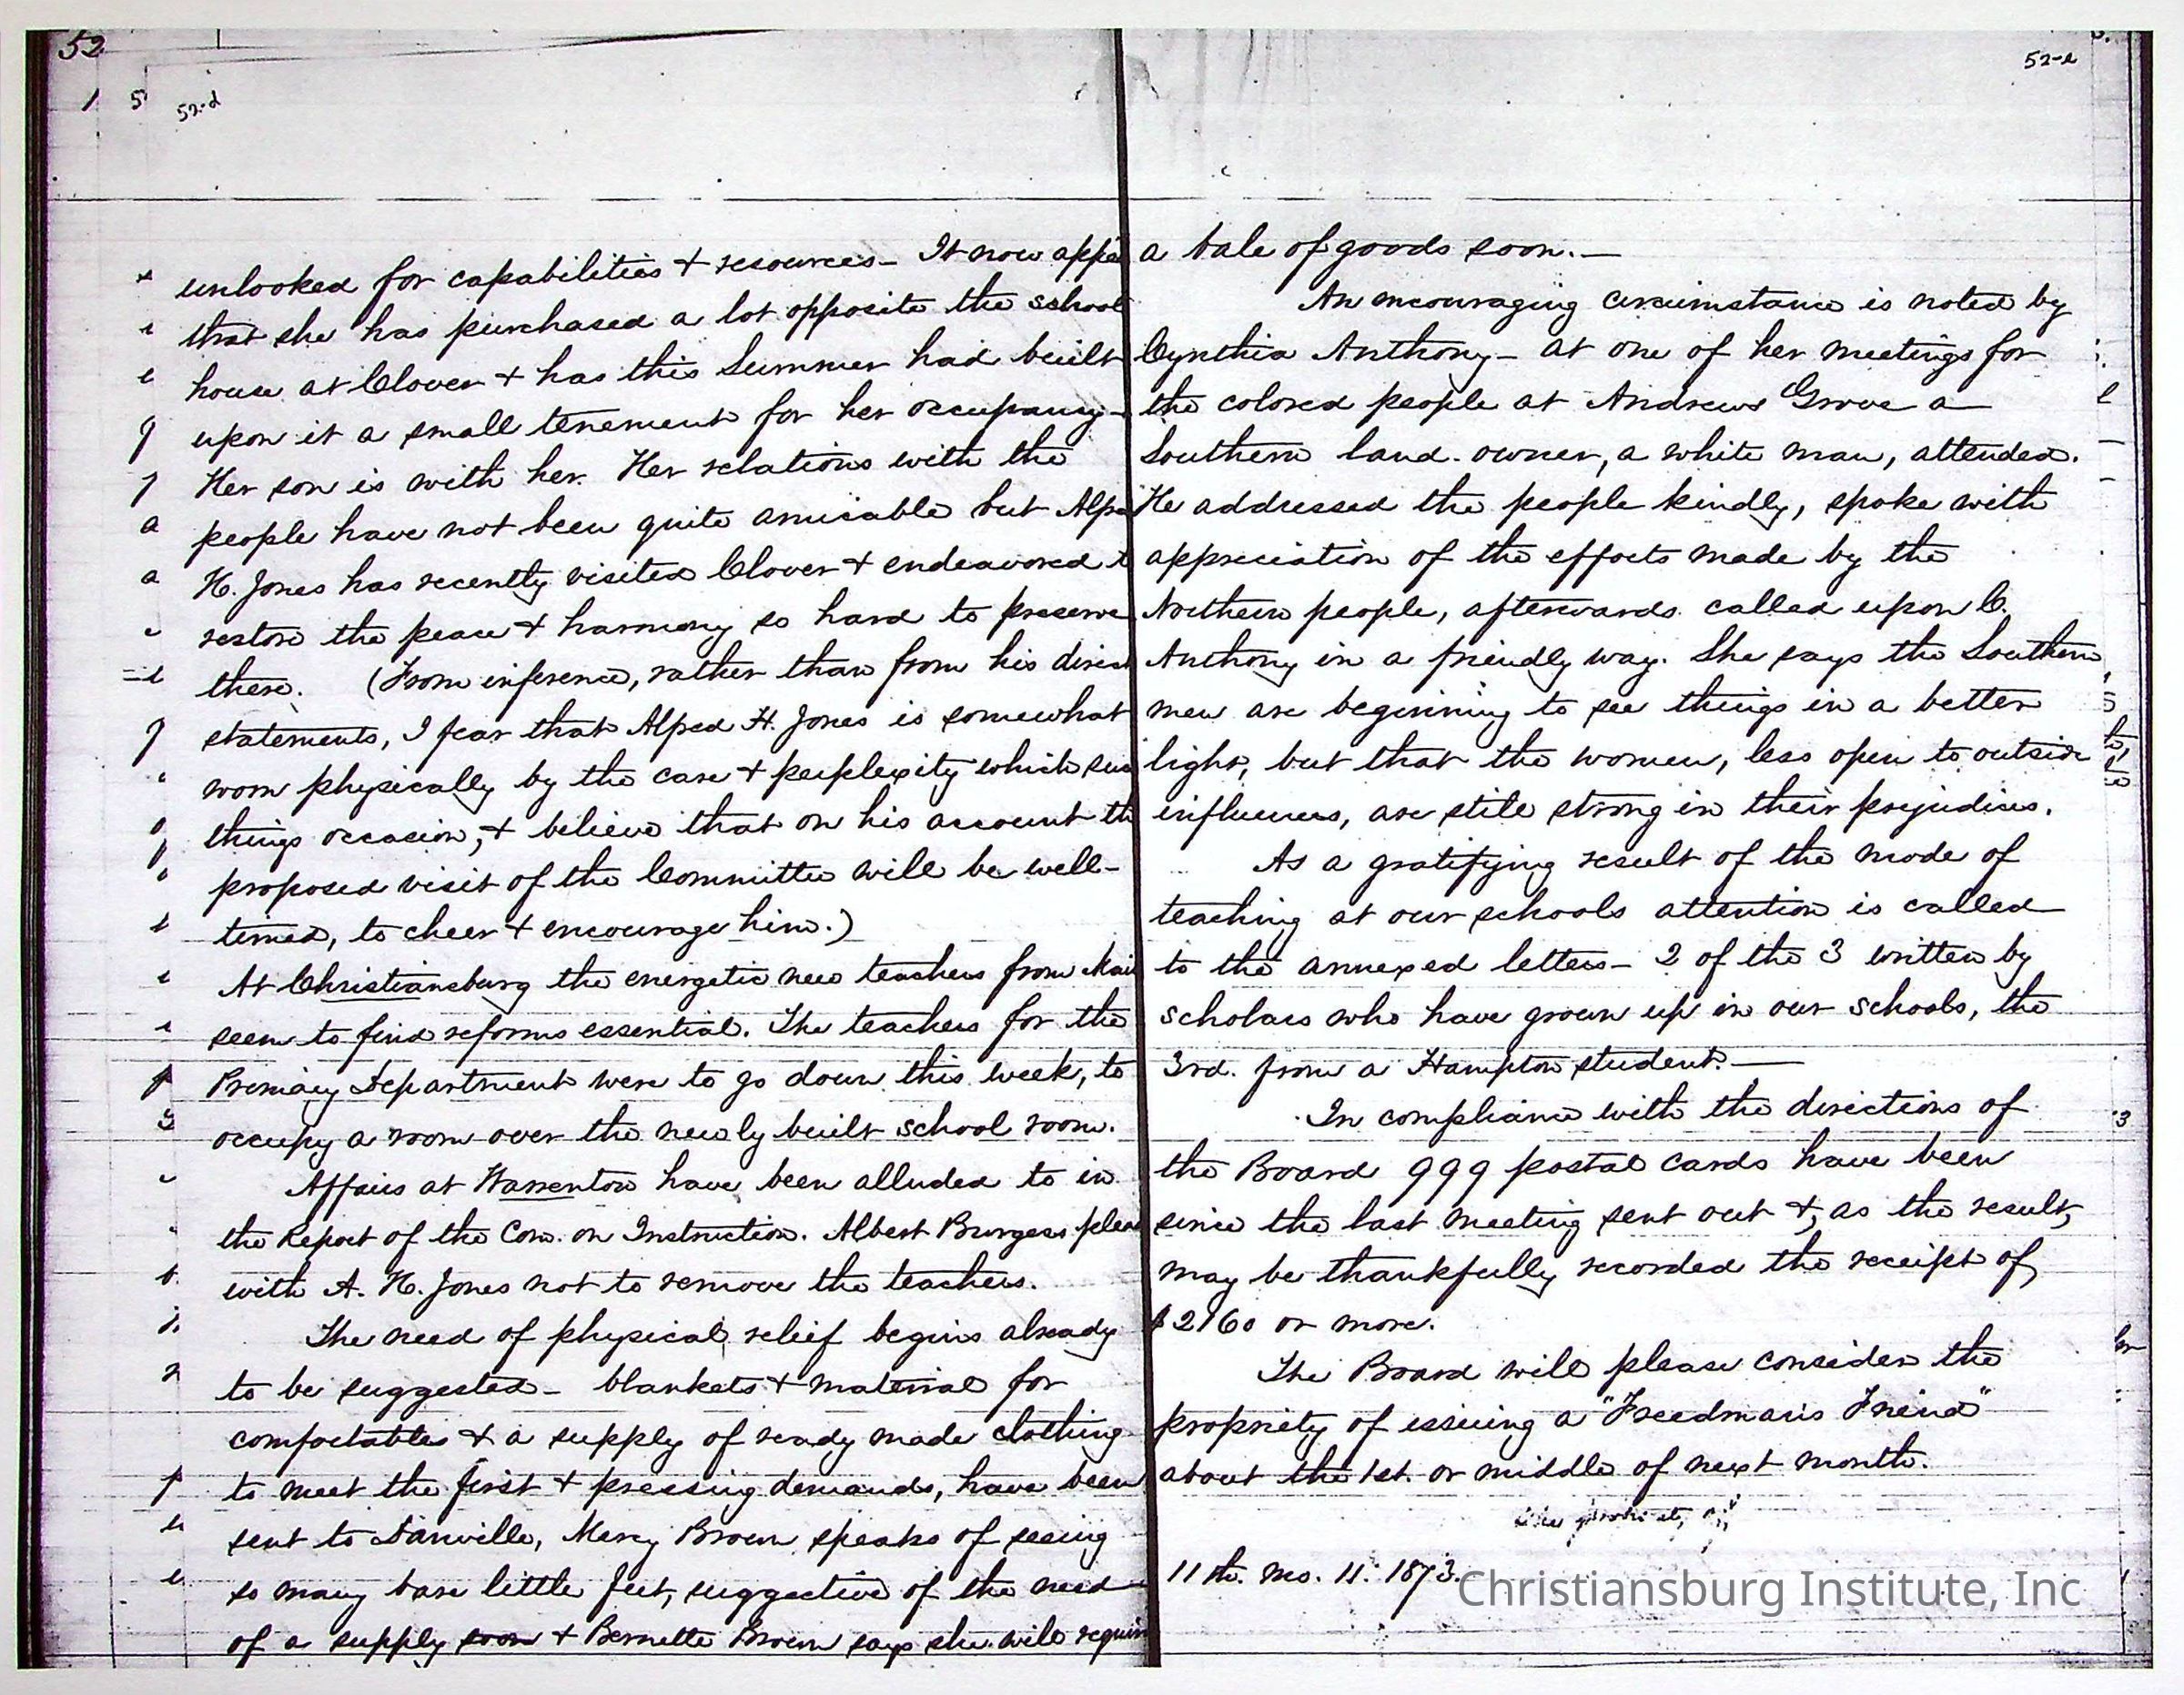 52
1 5 52-d
unlooked for capabilities & resources - It now appe
that she has purchased a lot opposite the school
house at Clover & has this Summer had built
upon it a small tenement for her occupancy -
Her son is with her. Her relations with the
people have not been quite amicable but Alfre
H. Jones has recently visited Clover & endeavored t
restore the peace & harmony so hard to preserve
there. (From inference, rather than from his direct
statements, I fear that Alfred H. Jones is somewhat
worn physically by the care & perplexity which suc
things occasion, & believe that on his account th
proposed visit of the Committee will be well-
timed, to cheer & encourage him.)
At Christiansburg the energetic new teachers from Mai
seem to find reforms essential. The teachers for the
Primary Department were to go down this week, to
occupy a room over the newly built school room.
Affairs at Warrenton have been alluded to in
the Report of the Com. on Instruction. Albert Burgess plea
with A. H. Jones not to remove the teachers.
The need of physical relief begins already
to be suggested - blankets & material for
comfortables & a supply of ready made clothing
to meet the first & pressing demands, have been
sent to Danville, Mercy Brown speaks of seeing
so many bare little feet, suggestive of the need
of a supply soon & Bernette Brown says she will requir
52-e
a bale of goods soon. -
An encouraging circumstance is noted by
Cynthia Anthony - at one of her meetings for
the colored people at Andrews Grove a
Southern land-owner, a white man, attended.
He addressed the people kindly, spoke with
appreciation of the efforts made by the
Northern people, afterwards called upon C.
Anthony in a friendly way. She says the Southern
men are beginning to see things in a better
light, but that the women, less open to outside
influences, are still strong in their prejudices.
As a gratifying result of the mode of
teaching at our schools attention is called
to the annexed letters - 2 of the 3 written by
scholars who have grown up in our schools, the
3rd. from a Hampton student. -
In compliance with the directions of
the Board 999 postal cards have been
since the last meeting sent out &, as the result,
may be thankfully recorded the receipt of
$2160 or more.
The Board will please consider the
propriety of issuing a "Freedman's Friend"
about the 1st. or middle of next month.
11th. mo. 11. 1873.
Christiansburg Institute, Inc